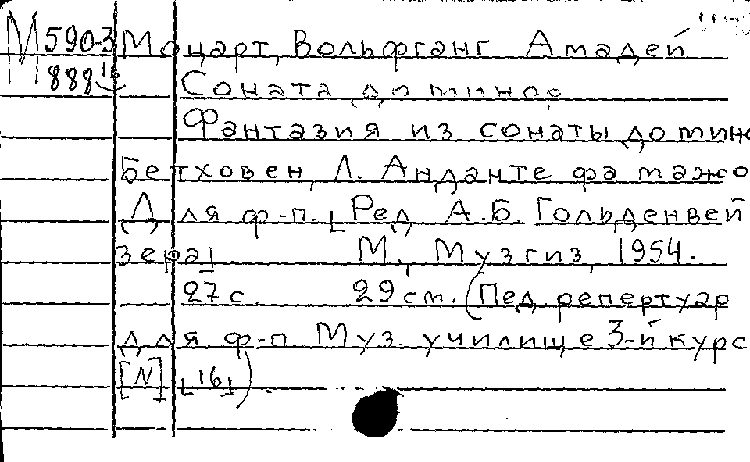 М 590-3 Моцарт, Вольфганг Амадей
888 16 Соната до минор
Фантазия из сонаты до мин
Бетховен, Л. Анданте фа мажо
Для ф-п. [Ред А.Б. Гольденвей
зера] М., Музгиз, 1954.
27 с. 29 см. (Пед. репертуар
для ф-п Муз. училище 3-й курс
[N] [16]).